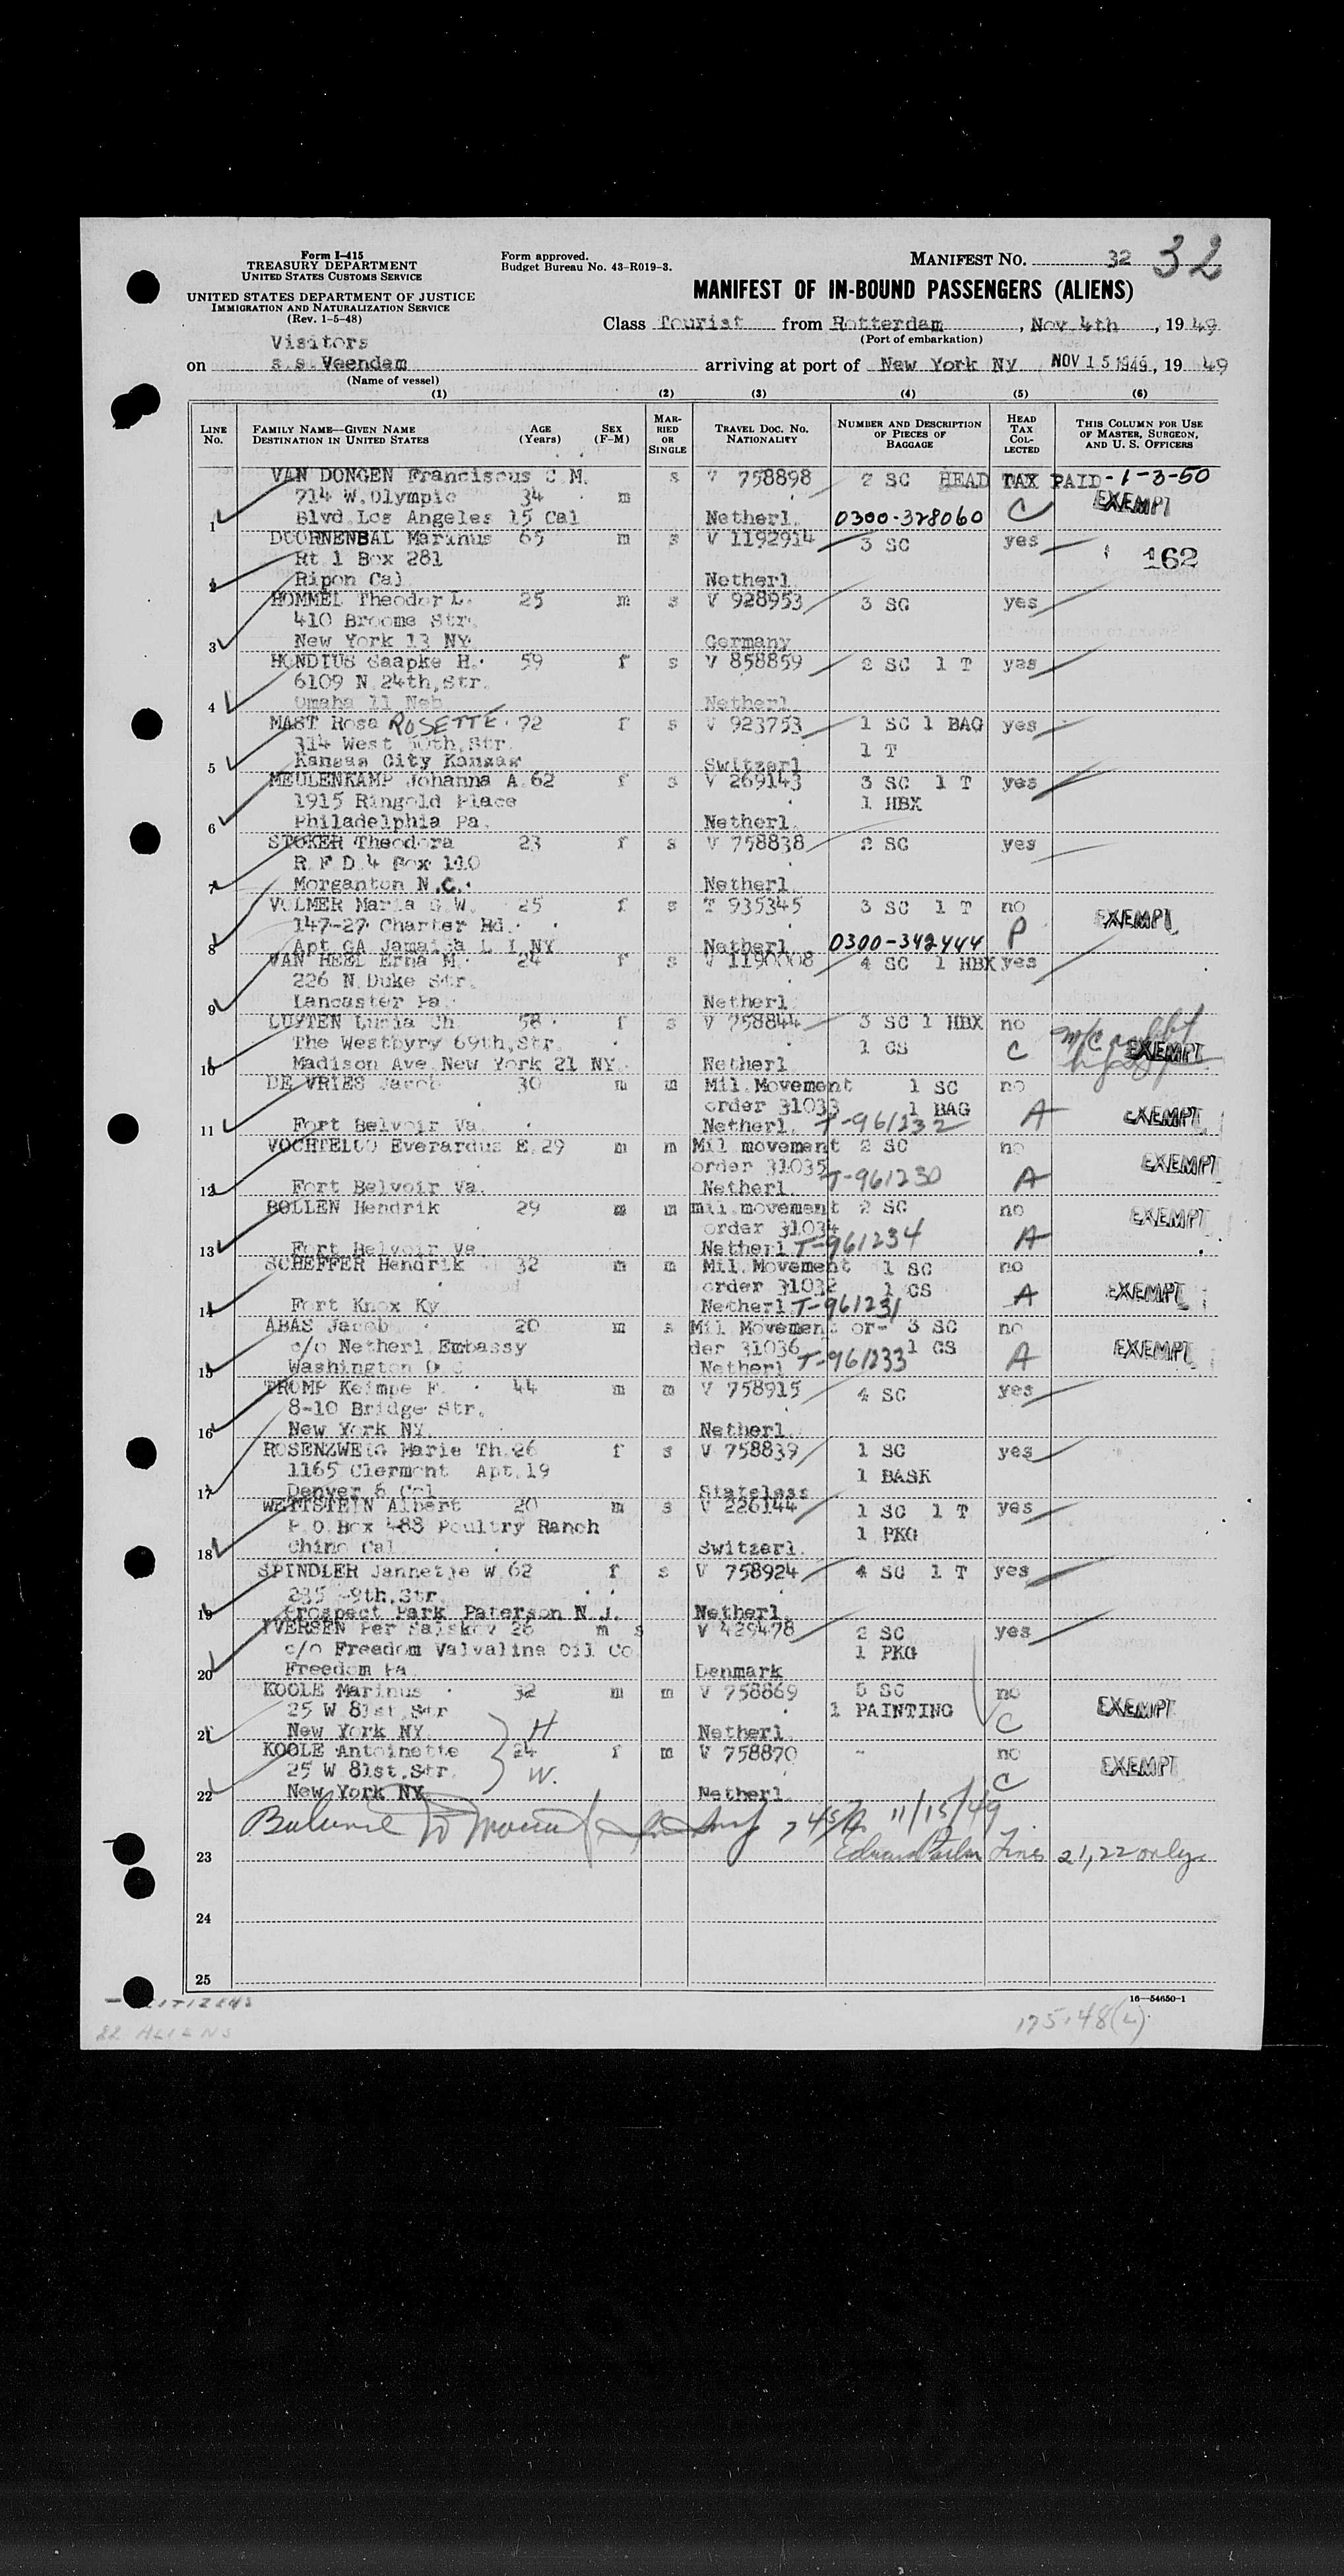 Form I-415
TREASURY DEPARTMENT
UNITED STATES CUSTOMS SERVICE
UNITED STATES DEPARTMENT OF JUSTICE
IMMIGRATION AND NATURALIZATION SERVICE
(Rev. 1-5-48)
Form approved.
Budget Bureau No. 43-R019-3.
MANIFEST No. 32 32
MANIFEST OF IN-BOUND PASSENGERS (ALIENS)
Class Tourist from Rotterdam, Nov 4th, 1949
(Port of embarkation)
Visitors
on s.s. Veendam arriving at port of New York Ny NOV 15 1949, 1949
(Name of vessel)
(1) (2) (3) (4) (5) (6)
LINE No. FAMILY NAME—GIVEN NAME DESTINATION IN UNITED STATES AGE (Years) SEX (F-M) MARRIED OR SINGLE TRAVEL DOC. NO. NATIONALITY NUMBER AND DESCRIPTION OF PIECES OF BAGGAGE HEAD TAX COLLECTED THIS COLUMN FOR USE OF MASTER, SURGEON, AND U. S. OFFICERS
VAN DONGEN Franciscus C M. s V 758898 2 SC HEAD TAX PAID-1-3-50
714 W.Olympic 34 m EXEMPT
1 Blvd.Los Angeles 15 Cal Netherl. 0300-328060 C
DOORNENBAL Marinus 65 m s V 1192914 3 SC yes 162
Rt 1 Box 281
2 Ripon Cal Netherl.
HOMMEL Theodor L. 25 m s V 928953 3 SC yes
410 Broome Str.
3 New York 13 NY Germany
HONDIUS Saapke H. 59 f s V 858859 2 SC 1 T yes
6109 N.24th,Str.
4 Omaha 11 Neb Netherl
MAST Rosa ROSETTE 72 f s V 923753 1 SC 1 BAG yes
314 West 50th,Str. 1 T
5 Kansas City Kansas Switzerl
MEULENKAMP Johanna A.62 f s V 269143 3 SC 1 T yes
1915 Ringold Place 1 HBX
6 Philadelphia Pa. Netherl.
STOKER Theodora 23 f s V 758838 2 SC yes
R.F.D.4 Box 110
7 Morganton N.C. Netherl.
VOLMER Maria G.W. 25 f s T 935345 3 SC 1 T no EXEMPT
147-27 Charter Rd. P
8 Apt GA Jamaica L I NY Netherl 0300-342444
VAN HEEL Erna M. 24 f s V 1190008 4 SC 1 HBX yes
226 N.Duke Str.
9 Lancaster Pa. Netherl
LUYTEN Lucia Ch 58 f s V 758844 3 SC 1 HBX no
The Westbyry 69th,Str. 1 CS C EXEMPT
10 Madison Ave New York 21 NY Netherl
DE VRIES Jacob 30 m m Mil.Movement 1 SC no
order 31033 1 BAG A EXEMPT
11 Fort Belvoir Va. Netherl. T-961232
VOCHTELOO Everardus E.29 m m Mil movement 2 SC no
order 31035 EXEMPT
12 Fort Belvoir Va. Netherl. T-961230 A
BOLLEN Hendrik 29 m m mil.movement 2 SC no EXEMPT
order 31034
13 Fort Belvoir Va Netherl T-961234 A
SCHEFFER Hendrik 32 m m Mil Movement 1 SC no
order 31032 1 CS EXEMPT
14 Fort Knox Ky Netherl T-961231 A
ABAS Jacob 20 m s Mil Movement or- 3 SC no
c/o Netherl Embassy der 31036 1 CS EXEMPT
15 Washington D C Netherl T-961233 A
TROMP Keimpe F. 44 m m V 758915 4 SC yes
8-10 Bridge Str.
16 New York NY. Netherl.
ROSENZWEIG Marie Th.26 f s V 758839 1 SC yes
1165 Clermont Apt.19 1 BASK
17 Denver 6 Col Stateless
WETTSTEIN Albert 20 m s V 226144 1 SC 1 T yes
P.O.Box 488 Poultry Ranch 1 PKG
18 Chino Cal Switzerl.
SPINDLER Jannetje W 62 f s V 758924 4 SC 1 T yes
19 Prospect Park Paterson N.J. Netherl
YVERSEN Per 26 m s V 429478 2 SC yes
c/o Freedom Valvaline Oil Co 1 PKG
20 Freedom Pa Denmark
KOOLE Marinus 32 m m V 758869 5 SC no
25 W 81st,Str 1 PAINTING EXEMPT
21 New York NY. H Netherl C
KOOLE Antoinette 24 f m V 758870 - no
25 W 81st.Str. W. EXEMPT
22 New York NY. Netherl. C
11/15/49
23 Lines 21, 22 only
24
25
16—54650-1
22 ALIENS
175.48(L)